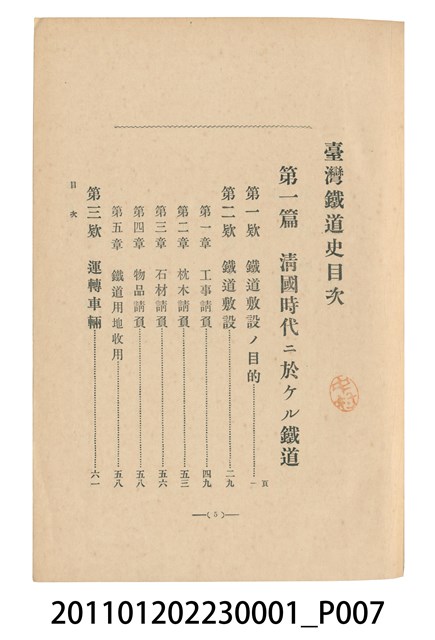 臺灣鐵道史目次
第一篇 清國時代ニ於ケル鐵道
頁
第一欵 鐵道敷設ノ目的………一
第二欵 鐵道敷設………二九
第一章 工事請負………四九
第二章 枕木請負………五三
第三章 石材請負………五六
第四章 物品請負………五八
第五章 鐵道用地收用………五八
第三欵 運轉車輛………六一
目次
(5)
201101202230001_P007